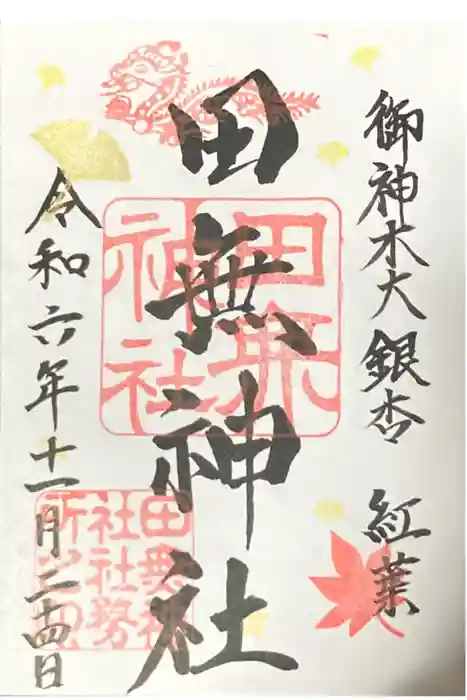 御神木大銀杏 紅葉
田無神社
田無神社
令和六年十一月二十四日
田無神
社社務
所之印